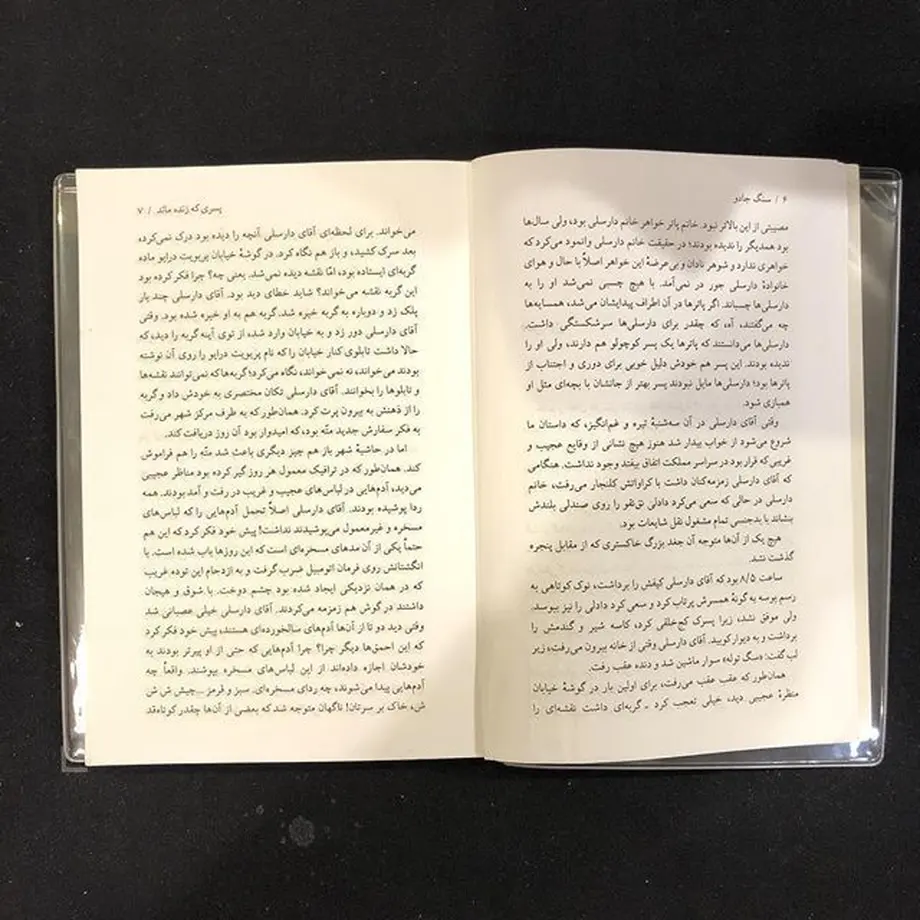 ۶ / سنگ جادو
مصیبتی از این بالاتر نبود. خانم پاتر خواهر خانم دارسلی بود، ولی سال‌ها
بود همدیگر را ندیده بودند؛ در حقیقت خانم دارسلی وانمود می‌کرد که
خواهری ندارد و شوهر نادان و بی‌عرضهٔ این خواهر اصلاً با حال و هوای
خانوادهٔ دارسلی جور در نمی‌آمد. با هیچ چسبی نمی‌شد او را به
دارسلی‌ها چسباند. اگر پاترها در آن اطراف پیدایشان می‌شد، همسایه‌ها
چه می‌گفتند، آه، که چقدر برای دارسلی‌ها سرشکستگی داشت.
دارسلی‌ها می‌دانستند که پاترها یک پسر کوچولو هم دارند، ولی او را
ندیده بودند. این پسر هم خودش دلیل خوبی برای دوری و اجتناب از
پاترها بود؛ دارسلی‌ها مایل نبودند پسر بهتر از جانشان با بچه‌ای مثل او
همبازی شود.
وقتی آقای دارسلی در آن سه‌شنبهٔ تیره و غم‌انگیز، که داستان ما
شروع می‌شود از خواب بیدار شد هنوز هیچ نشانی از وقایع عجیب و
غریبی که قرار بود در سراسر مملکت اتفاق بیفتد وجود نداشت. هنگامی
که آقای دارسلی زمزمه‌کنان داشت با کراواتش کلنجار می‌رفت، خانم
دارسلی در حالی که سعی می‌کرد دادلی نق‌نقو را روی صندلی بلندش
بنشاند با بدجنسی تمام مشغول نقل شایعات بود.
هیچ یک از آن‌ها متوجه آن جغد بزرگ خاکستری که از مقابل پنجره
گذشت نشد.
ساعت ۸/۵ بود که آقای دارسلی کیفش را برداشت، نوک کوتاهی به
رسم بوسه به گونهٔ همسرش پرتاب کرد و سعی کرد دادلی را نیز ببوسد.
ولی موفق نشد، زیرا پسرک کج‌خلقی کرد، کاسه شیر و گندمش را
برداشت و به دیوار کوبید. آقای دارسلی وقتی از خانه بیرون می‌رفت، زیر
لب گفت: «سگ توله» سوار ماشین شد و دنده عقب رفت.
همان‌طور که عقب عقب می‌رفت، برای اولین بار در گوشهٔ خیابان
منظرهٔ عجیبی دید، خیلی تعجب کرد ـ گربه‌ای داشت نقشه‌ای را
پسری که زنده ماند / ۷
می‌خواند. برای لحظه‌ای آقای دارسلی آنچه را دیده بود درک نمی‌کرده
بعد سرک کشید، و باز هم نگاه کرد. در گوشهٔ خیابان پریویت درایو ماده
گربه‌ای ایستاده بود، امّا نقشه دیده نمی‌شد. یعنی چه؟ چرا فکر کرده بود
این گربه نقشه می‌خواند؟ شاید خطای دید بود. آقای دارسلی چند بار
پلک زد و دوباره به گربه خیره شد. گربه هم به او خیره شده بود. وقتی
آقای دارسلی دور زد و به خیابان وارد شد، از توی آینه گربه را دید، که
حالا داشت تابلوی کنار خیابان را که نام پریویت درایو را روی آن نوشته
بودند می‌خواند، نه نمی‌خواند، نگاه می‌کرد؛ گربه‌ها که نمی‌توانند نقشه‌ها
و تابلوها را بخوانند. آقای دارسلی تکان مختصری به خودش داد و گربه
را از ذهنش به بیرون پرت کرد. همان‌طور که به طرف مرکز شهر می‌رفت
به فکر سفارش جدید متّه بود، که امیدوار بود آن روز دریافت کند.
اما در حاشیهٔ شهر باز هم چیز دیگری باعث شد متّه را هم فراموش
کند. همان‌طور که در ترافیک معمول هر روز گیر کرده بود مناظر عجیبی
می‌دید، آدم‌هایی در لباس‌های عجیب و غریب در رفت و آمد بودند. همه
ردا پوشیده بودند. آقای دارسلی اصلاً تحمل آدم‌هایی را که لباس‌های
مسخره و غیرمعمول می‌پوشیدند نداشت! پیش خود فکر کرد که این هم
حتماً یکی از آن مدهای مسخره‌ای است که این روزها باب شده است. با
انگشتانش روی فرمان اتومبیل ضرب گرفت و به ازدحام این توده غریب
که در همان نزدیکی ایجاد شده بود چشم دوخت. با شوق و هیجان
داشتند در گوش هم زمزمه می‌کردند. آقای دارسلی خیلی عصبانی شد
وقتی دید دو تا از آن‌ها آدم‌های سالخورده‌ای هستند، پیش خود فکر کرد
که این احمق‌ها دیگر چرا؟ چرا آدم‌هایی که حتی از او پیرتر بودند به
خودشان اجازه داده‌اند از این لباس‌های مسخره بپوشند. واقعاً چه
آدم‌هایی پیدا می‌شوند، چه ردای مسخره‌ای. سبز و قرمز ...چیش ش ش
ش، خاک بر سرتان! ناگهان متوجه شد که بعضی از آن‌ها چقدر کوتاه‌قد